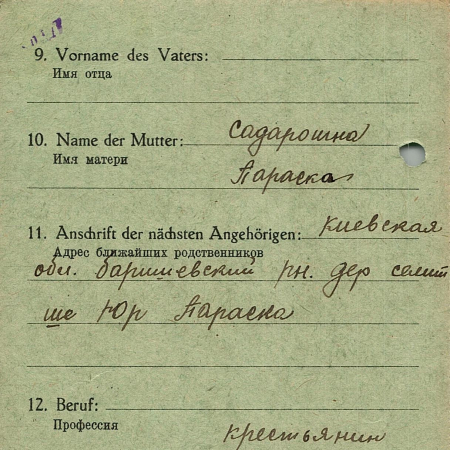 9. Vorname des Vaters:
Имя отца
10. Name der Mutter: Садарошна
Имя матери
Параска
11. Anschrift der nächsten Angehörigen: киевская
Адрес ближайших родственников
обл. баришевский рн. дер селит
ше Юр Параска
12. Beruf:
Профессия
крестьянин